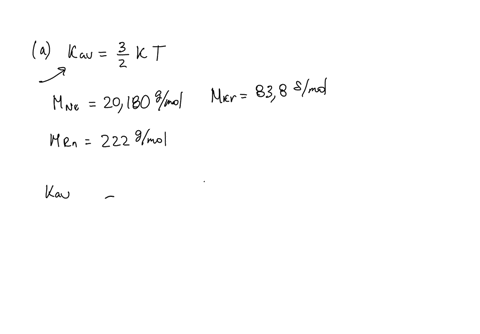 (a) Kav = 3/2 K T
MNe = 20,180 g/mol MKr = 83,8 g/mol
MRn = 222 g/mol
Kav =